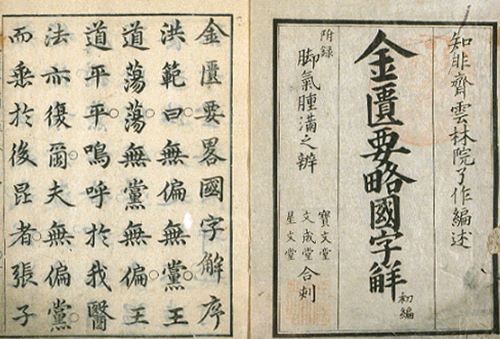 知非齋雲林院了作編述
金匱要略國字解
初編
附録
脚氣腫滿之辨
寶文堂
文成堂
星文堂
合刻
金匱要畧國字解序
洪範曰無偏無黨。王
道蕩蕩。無黨無偏。王
道平平。嗚呼於我醫
法亦復爾。夫無偏黨。
而垂於後昆者。張子